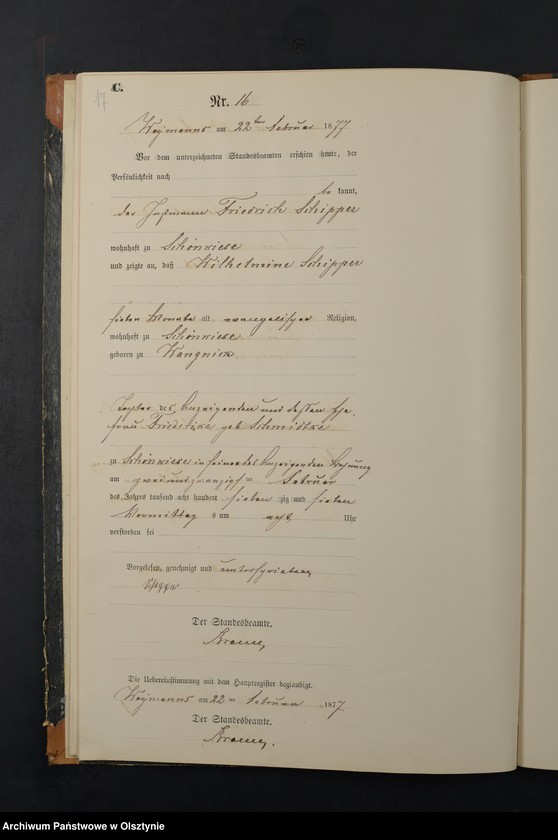 17
C.
Nr. 16
Weymanns am 22ten Februar 1877
Vor dem unterzeichneten Standesbeamten erschien heute, der
Persönlichkeit nach
be kannt,
der Instmann Friedrich Schipper
wohnhaft zu Schönwiese
und zeigte an, daß Wilhelmine Schipper
sieben Monate alt, evangelischer Religion,
wohnhaft zu Schönwiese
geboren zu Wangnick
Tochter des Anzeigenden und dessen Ehe-
frau Friederike geb Schmidtke
zu Schönwiese in seiner des Anzeigenden Wohnung
am zweiundzwanzigsten Februar
des Jahres tausend acht hundert sieben zig und sieben
Vormittag s um acht Uhr
verstorben sei
Vorgelesen, genehmigt und unterschrieben
Schipper
Der Standesbeamte.
Die Uebereinstimmung mit dem Hauptregister beglaubigt.
Weymanns am 22 ten Februar 1877
Der Standesbeamte.
Archiwum Państwowe w Olsztynie